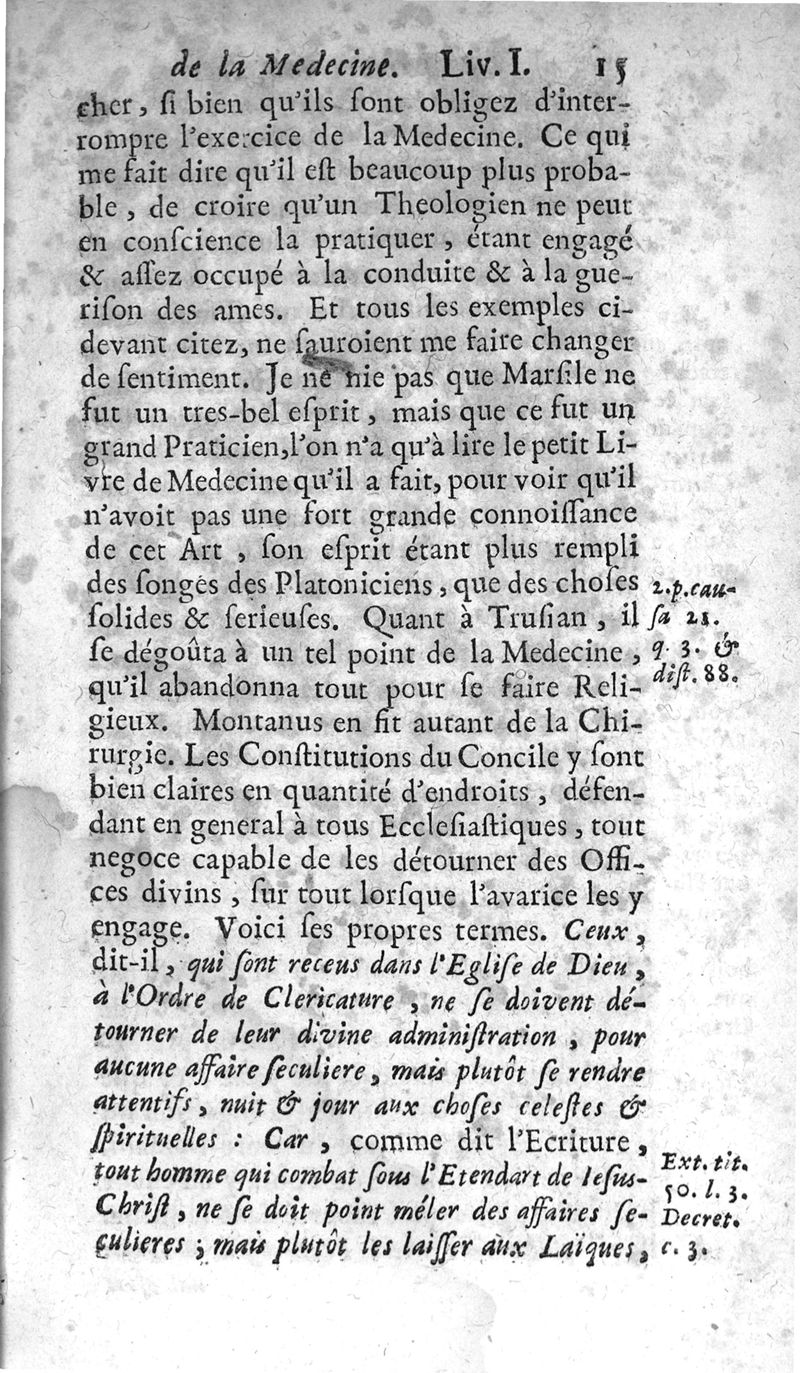 de la Medecine. Liv. I. 15
cher, ſi bien qu'ils ſont obligez d'inter-
rompre l'exercice de la Medecine. Ce qui
me fait dire qu'il eſt beaucoup plus proba-
ble, de croire qu'un Theologien ne peut
en conſcience la pratiquer, étant engagé
& aſſez occupé à la conduite & à la gue-
riſon des ames. Et tous les exemples ci-
devant citez, ne ſauroient me faire changer
de ſentiment. Je ne nie pas que Marſile ne
fut un tres-bel eſprit, mais que ce fut un
grand Praticien, l'on n'a qu'à lire le petit Li-
vre de Medecine qu'il a fait, pour voir qu'il
n'avoit pas une fort grande connoiſſance
de cet Art, ſon eſprit étant plus rempli
des ſonges des Platoniciens, que des choſes
ſolides & ſerieuſes. Quant à Truſian, il
ſe dégoûta à un tel point de la Medecine,
qu'il abandonna tout pour ſe faire Reli-
gieux. Montanus en fit autant de la Chi-
rurgie. Les Conſtitutions du Concile y ſont
bien claires en quantité d'endroits, défen-
dant en general à tous Eccleſiaſtiques, tout
negoce capable de les détourner des Offi-
ces divins, ſur tout lorſque l'avarice les y
engage. Voici ſes propres termes. Ceux,
dit-il, qui ſont receus dans l'Egliſe de Dieu,
à l'Ordre de Clericature, ne ſe doivent dé-
tourner de leur divine adminiſtration, pour
aucune affaire ſeculiere, mais plutôt ſe rendre
attentifs, nuit & jour aux choſes celeſtes &
ſpirituelles : Car, comme dit l'Ecriture,
tout homme qui combat ſous l'Etendart de Ieſus-
Chriſt, ne ſe doit point méler des affaires ſe-
culieres ; mais plutôt les laiſſer aux Laïques,
2. p. cau-
ſa 21.
q. 3. &
diſt. 88.
Ext. tit.
50. l. 3.
Decret.
c. 3.